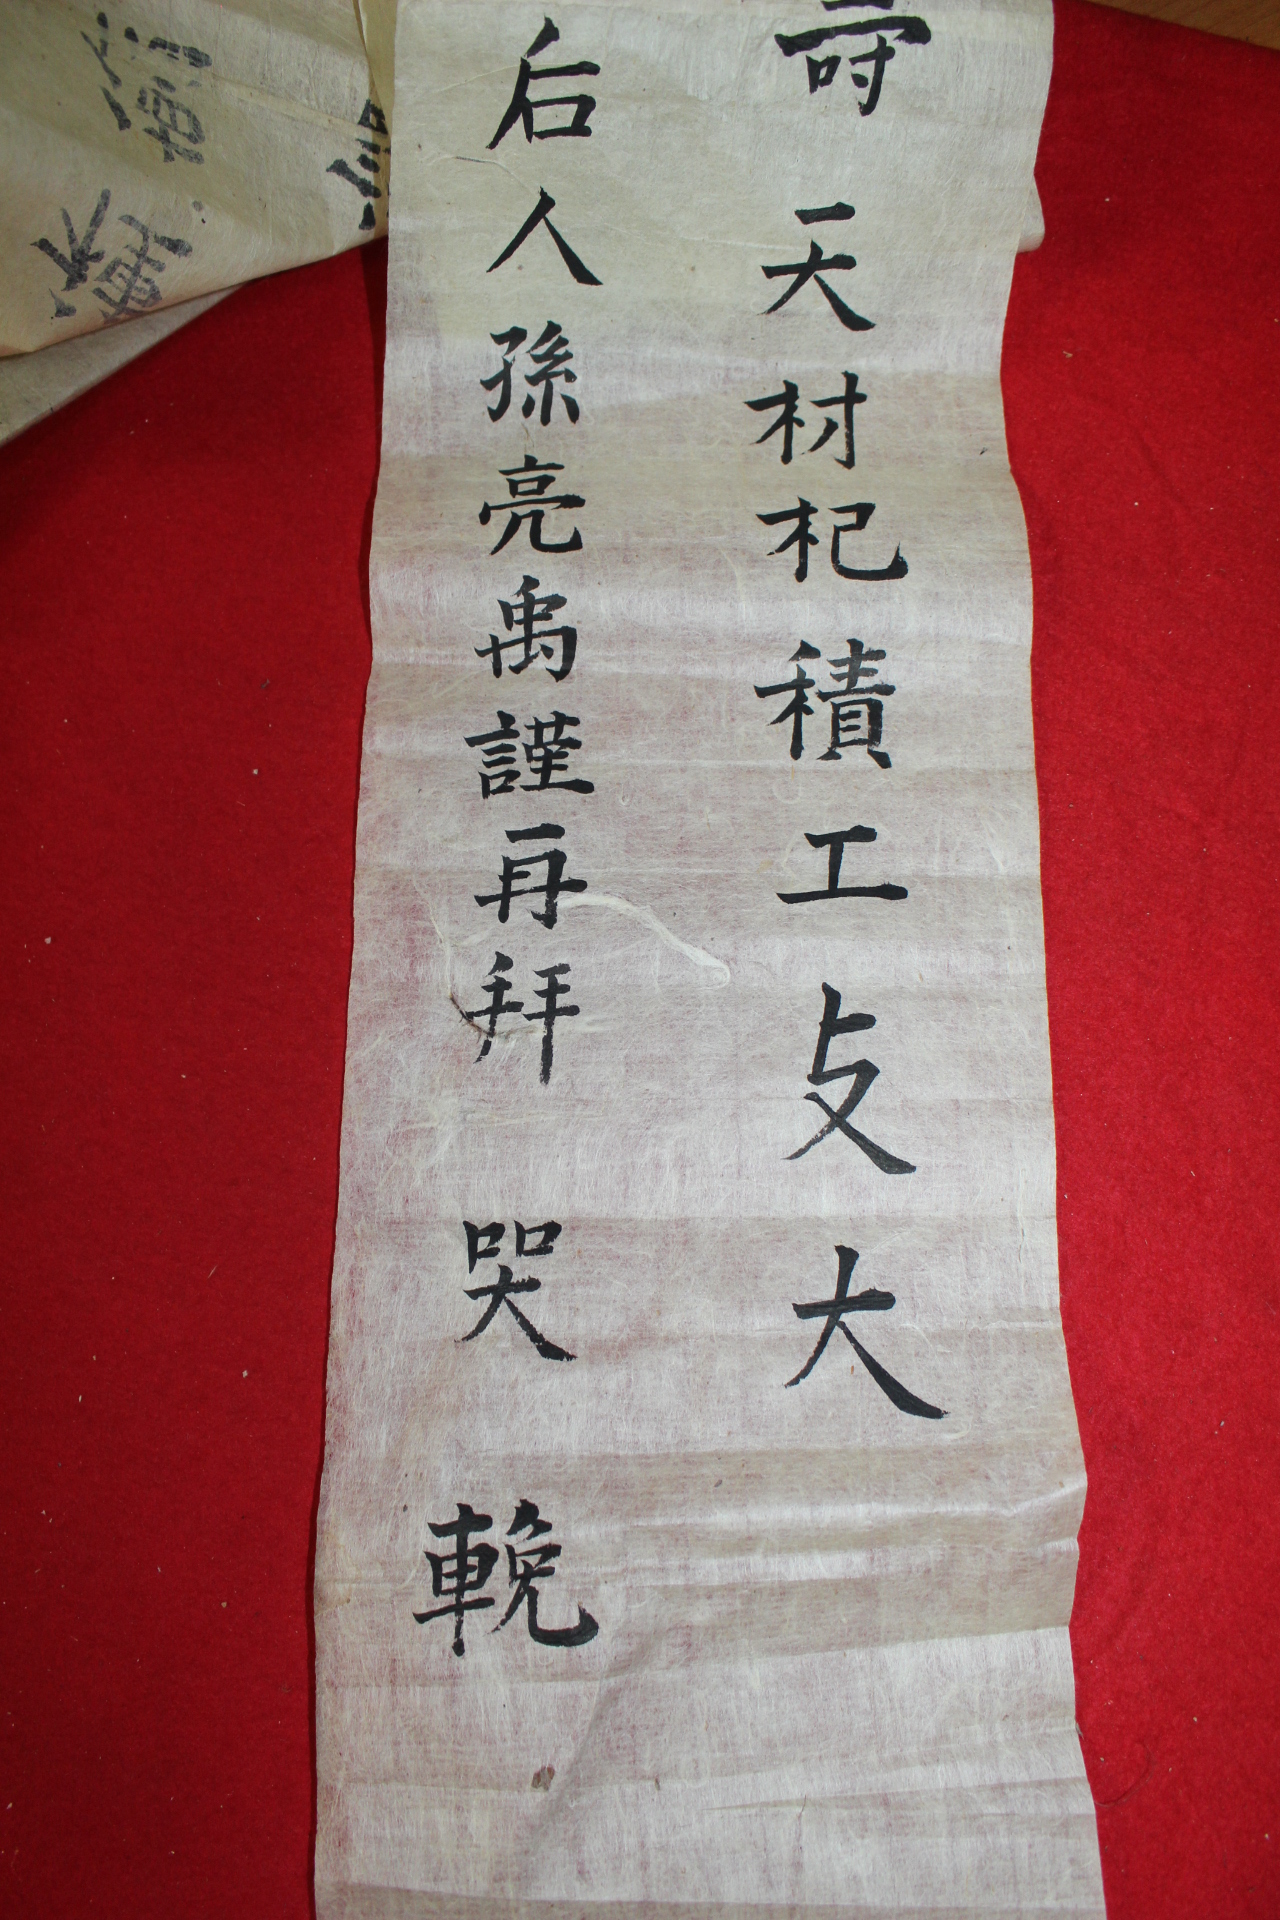 壽天材杞積工大
后人孫亮禹謹再拜 哭 輓